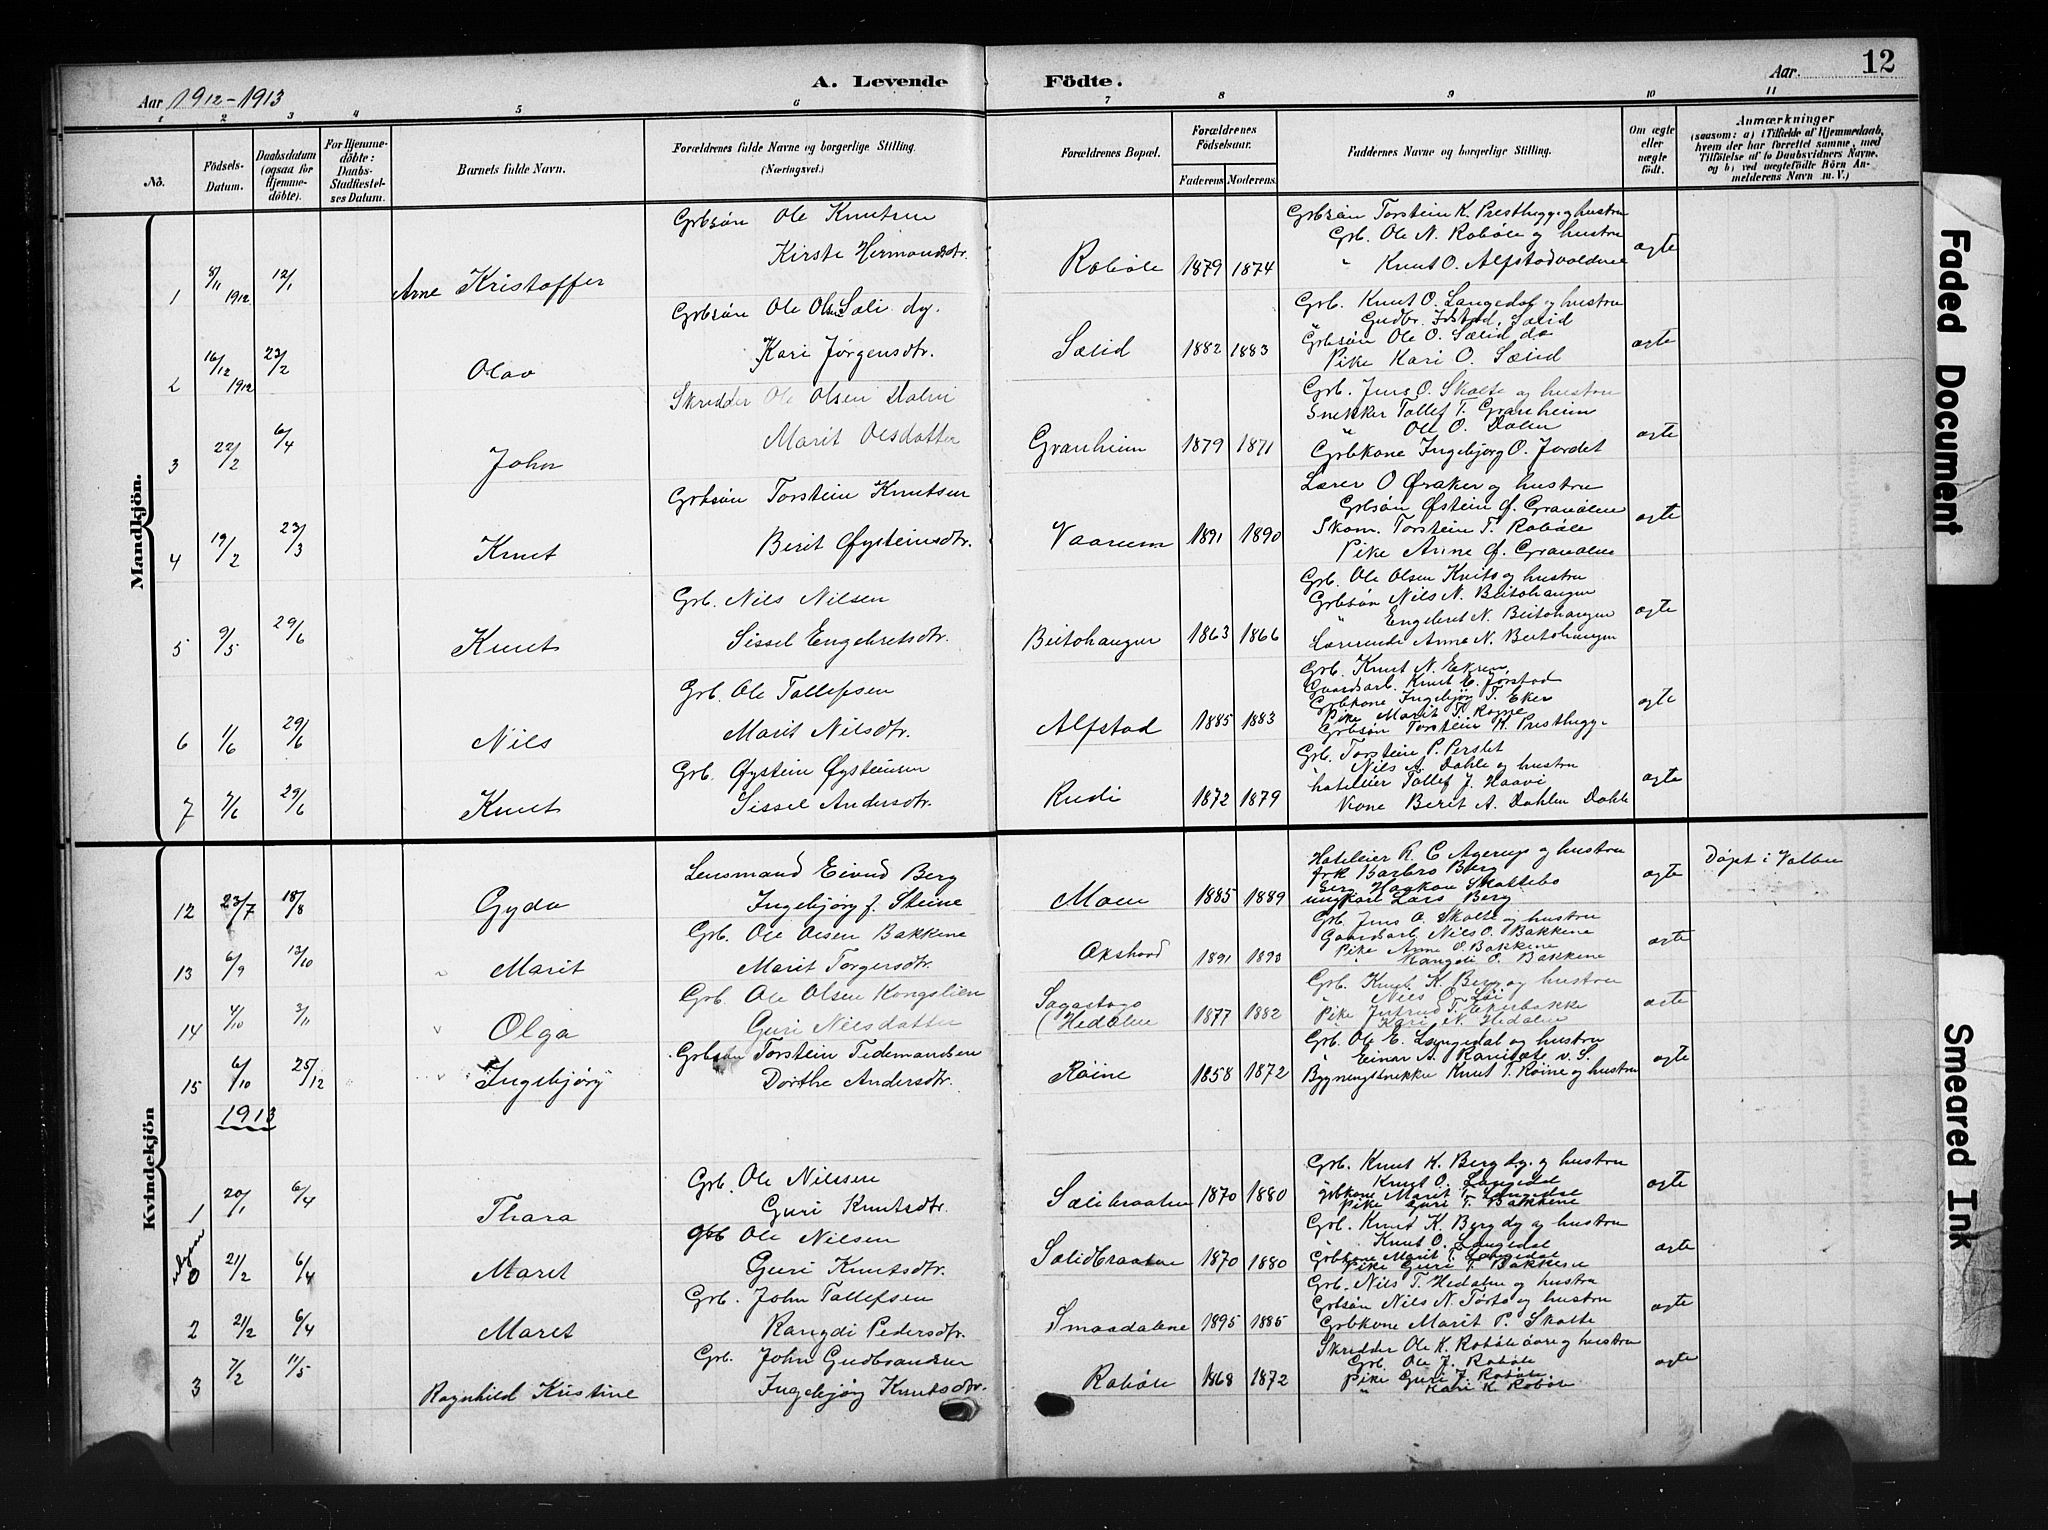 12
A. Levende Födte.
Aar 1912-1913
Aar.
1 2 3 4 5 6 7 8 9 10 11
No.
Födsels-Datum.
Daabsdatum (ogsaa for Hjemmedöbte).
For Hjemmedöbte: Daabs-Stadfæstelses Datum.
Barnets fulde Navn.
Forældrenes fulde Navne og borgerlige Stilling. (Næringsvei.)
Forældrenes Bopæl.
Forældrenes Födselsaar.
Faderens. Moderens.
Faddernes Navne og borgerlige Stilling.
Om ægte eller uægte födt.
Anmærkninger
(saasom: a) i Tilfælde af Hjemmedaab, hvem der har forrettet samme, med Tilföielse af to Daabsvidners Navne, og b) ved uægtefödte Börn Anmelderens Navn m. V.)
Mandkjön.
1 8/11 1912 12/1 Arne Kristoffer
Grbsön Ole Knutsen
Kirste Hermandsdtr.
Robøle 1879 1874
Grbsøn Torstein K. Presthygg. og hustru
Grb. Ole N. Robøle og hustru
" Knut O. Alfstad
ægte
2 16/12 1912 23/2 Olav
Grbsön Ole Olsen Sæli dy.
Kari Jørgensdtr.
Sælid 1882 1883
Grb. Knut O. Langedal og hustru
Grbsøn Ole O. Sælid do
Pike Kari O. Sælid
ægte
3 22/2 6/4 John
Skredder Ole Olsen Dalen
Marit Olsdatter
Granheim 1879 1871
Grb. Jens O. Skolte og hustru
Snekker Tollef T. Granheim
" Ole O. Dalen
Grbkone Ingebjørg O. Jordet
ægte
4 19/2 23/3 Knut
Grbsøn Torstein Knutsen
Berit Øysteinsdtr.
Vaarum 1891 1890
Lærer O Øraker og hustru
Grbsøn Østein Ø. Granolen
Skom. Torstein T. Robøle
Pike Anne Ø. Granolen
ægte
5 9/5 29/6 Knut
Grb. Nils Nilsen
Sissel Engebretsdtr.
Beitohaugen 1863 1866
Grb. Ole Olsen Kvito og hustru
Grbsøn Nils N. Beitohaugen
" Engebret N. Beitohaugen
Lærerinde Anne N. Beitohaugen
ægte
6 1/6 29/6 Nils
Grb. Ole Tollefsen
Marit Nilsdtr.
Alfstad 1885 1883
Grb. Knut N. Ekren
Gaardsarb. Knut E. Jørstad
Grbkone Ingebjør T. Eker
Pike Marit T. Rogne
Grbsøn Torstein K. Presthygg.
ægte
7 7/6 29/6 Knut
Grb. Øystein Øysteinsen
Sissel Andersdtr.
Rudi 1872 1879
Grb. Torstein P. Perslet
Nils A. Dahle og hustru
hoteleier Tollef J. Haavi
Kone Berit A. Dahlen Dahle
ægte
Kvindekjön
12 23/7 18/8 Gyda
Lensmand Eivind Berg
Ingebjørg f. Steine
Moen 1885 1889
Hoteleier R. C Agerup og hustru
frk Barbro Berg
Serg Haakon Skattebo
ungkarl Lars Berg
ægte
Døpt i Volbu
13 6/9 13/10 " Marit
Grb. Ole Olsen Bakkene
Marit Torgersdtr.
Okshovd 1891 1890
Grb. Jens O. Skolte og hustru
Gaardsarb Nils O. Bakkene
Pike Anne O. Bakkene
Rangdi O. Bakkene
ægte
14 4/10 3/11 " Olga
Grb. Ole Olsen Kongslien
Guri Nilsdatter
Sagastogo
(Hedalen 1877 1882
Grb. Knut K. Berg og hustru
" Nils O. Løi
Pike Jertrud T. Ekerbakke
" Kari N. Hedalen
ægte
15 6/10 25/12 " Ingebjørg
Grbsøn Torstein Tedemandsen
Dorthe Andersdtr.
Røine 1858 1872
Grb. Ole E. Langedal og hustru
" Einar A. Ranisæte v. S.
Bygningssnekke Knut T. Røine og hustru
ægte
1913
1 20/1 6/4 Thora
Grb. Ole Nilssen
Guri Knutsdtr.
Sælibraaten 1870 1880
Grb. Knut K. Berg b.y. og hustru
Knut O. Langedal
grbkone Marit T. Langedal
Pike Guri T. Bakkene
ægte
0 21/2 6/4 Maret
Grb Ole Nilsen
Guri Knutsdtr.
Sælidbraaten 1870 1880
Grb. Knut K. Berg dy og hustru
" Knut O. Langedal
Grbkone Marit T. Langedal
Pike Guri T. Bakkene
ægte
2 21/2 6/4 Maret
Grb. John Tollefsen
Rangdi Pedersdtr.
Smaadalene 1895 1885
Grb. Nils T. Hedalen og hustru
Grbsøn Nils N. Førto og hustru
Grbkone Marit P. Skolte
ægte
3 7/2 11/5 Ragnhild Kristine
Grb. John Gudbrandsen
Ingebjørg Knutsdtr.
Robøle 1868 1872
Skredder Ole K. Robøle og hustru
Grb. Ole J. Robøle
Pike Guri J. Robøle
" Kari K. Robøle
ægte
Faded Document
Smeared Ink